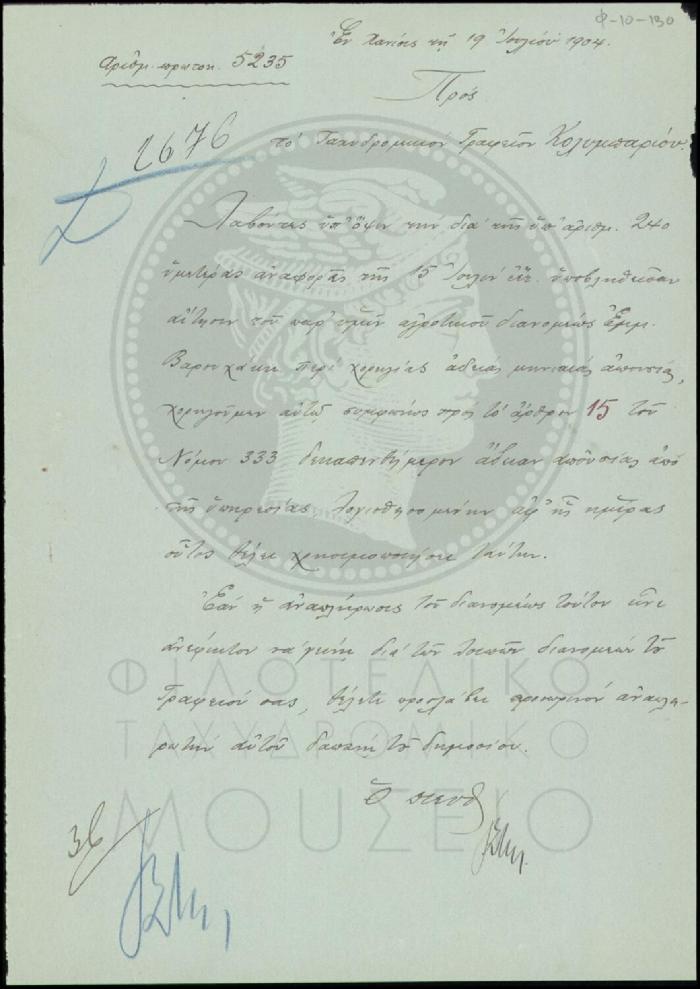 Φ-10-130
Ἐν Χανίοις τῇ 19 Ἰουλίου 1904.
Ἀριθμ. πρωτοκ. 5235
Πρός
2676
τό Ταχυδρομικόν Γραφεῖον Κολυμπαρίου.
Λαβόντες ὑπ' ὄψιν τήν διά τῆς ὑπ' ἀριθμ. 240
ὑμετέρας ἀναφορᾶς τῆς 15 Ἰουλίου ὑποβληθεῖσαν
αἴτησιν τοῦ παρ' ὑμῖν ἀγροτικοῦ διανομέως Ἐμμ.
Βαρουχάκη περί χορηγίας ἀδείας μηνιαίας ἀπουσίας,
χορηγοῦμεν αὐτῷ συμφώνως πρός τό ἄρθρον 15 τοῦ
Νόμου 333 δεκαπενθήμερον ἄδειαν ἀπουσίας ἀπό
τῆς ὑπηρεσίας, λογισθησομένην ἀφ' ἧς ἡμέρας
οὗτος θέλει χρησιμοποιήσει ταύτην.
Ἐάν ἡ ἀναπλήρωσις τοῦ διανομέως τούτου εἶνε
ἀνέφικτον νά γείνῃ διά τῶν λοιπῶν διανομέων τοῦ
Γραφείου σας, θέλετε προσλάβει προσωρινόν ἀναπλη-
ρωτήν αὐτοῦ δαπάνῃ τοῦ δημοσίου.
Ὁ
36
ΦΙΛΟΤΕΛΙΚΟ
ΤΑΧΥΔΡΟΜΙΚΟ
ΜΟΥΣΕΙΟ